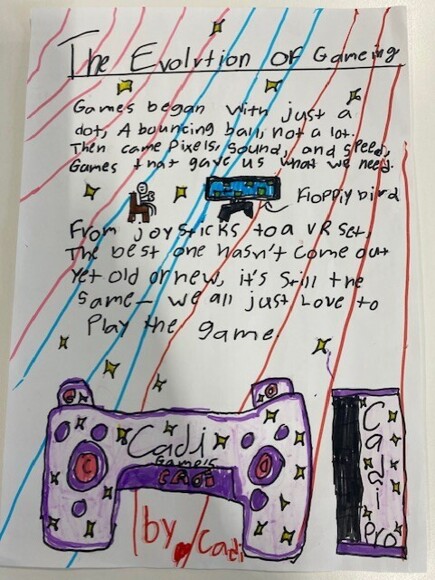 The Evolution OF Gameing
Games began with just a
dot, A bouncing ball, not a lot.
Then came Pixels, Sound, and speed,
Games that gave us what we need.
Floppiy bird
From joysticks to a VR set,
The best one hasn't come out
yet old or new, it's still the
same— we all just Love to
Play the game.
Cadi
Game's
C
by Cadi
Cadi
Pro